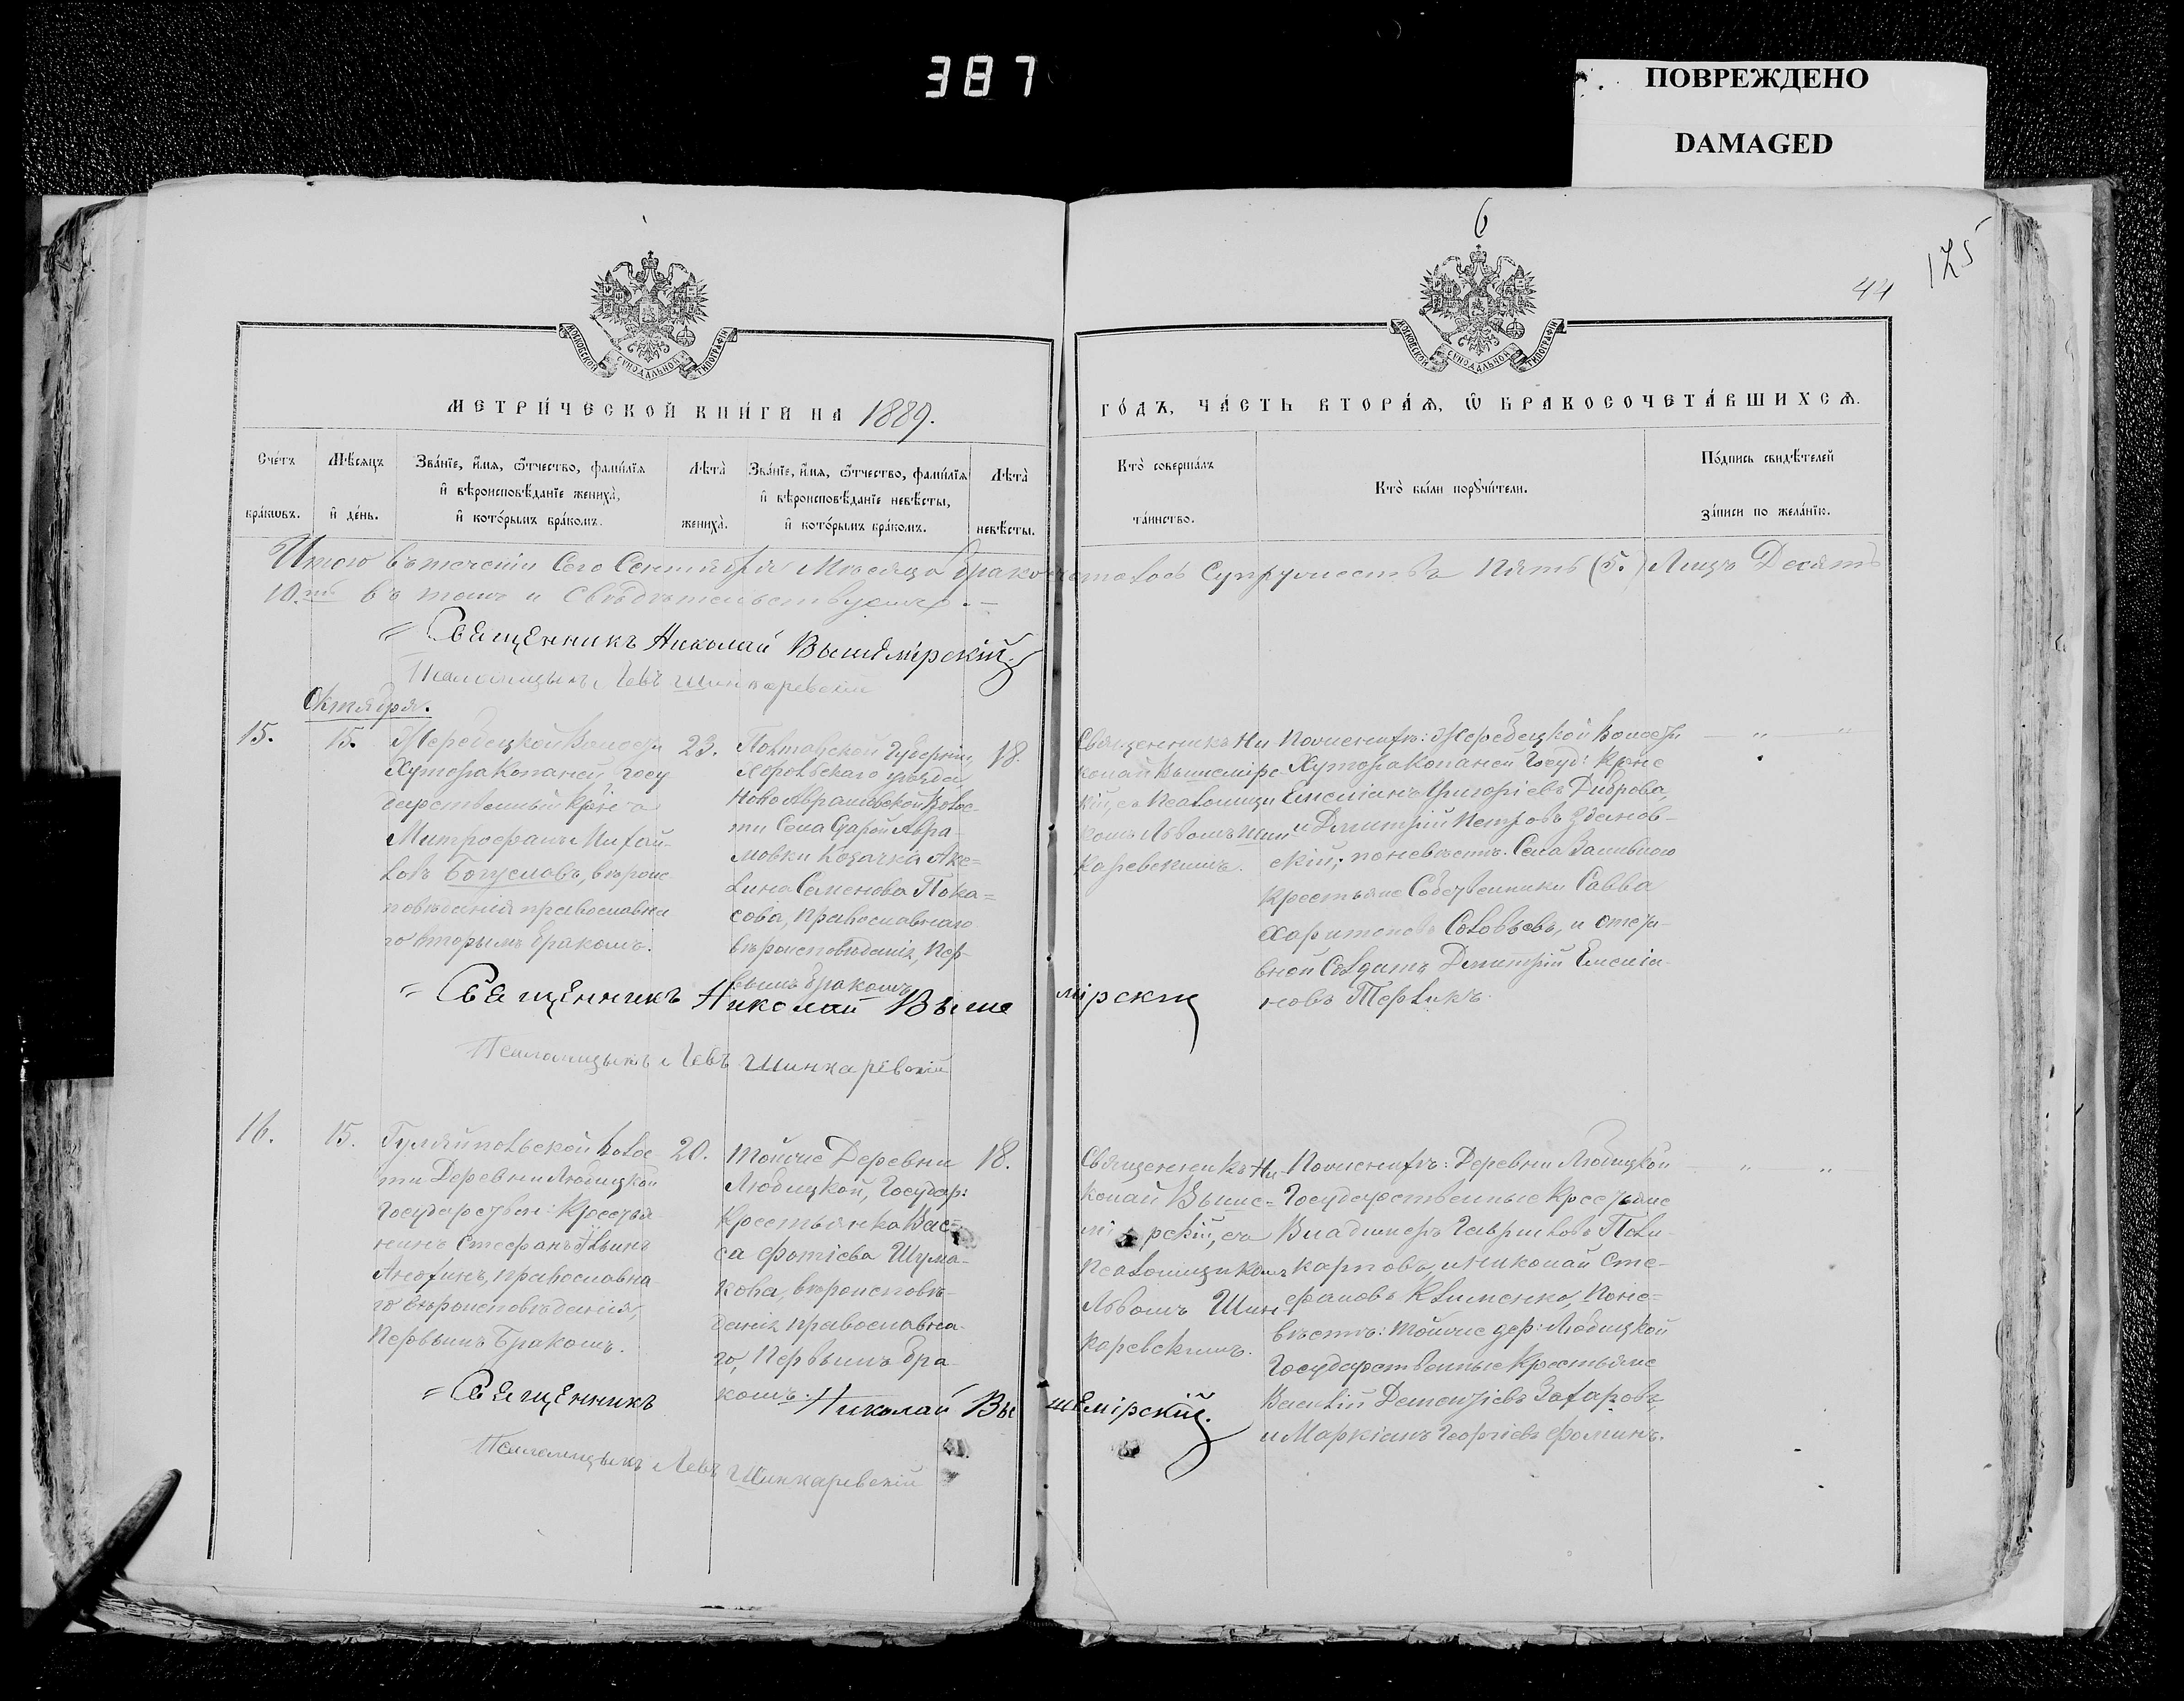 387
ПОВРЕЖДЕНО
DAMAGED
6
44
125
МОСКОВСКОЙ СѴНОДАЛЬНОЙ ТИПОГРАФІИ
МОСКОВСКОЙ СѴНОДАЛЬНОЙ ТИПОГРАФІИ
МЕТРИ́ЧЕСКОЙ КНИ́ГИ НА 1889.
ГО́ДЪ, ЧА́СТЬ ВТОРА́Ѧ, Ѡ҆ БРАКОСОЧЕТА́ВШИХСѦ.
Сче́тъ бра́кѡвъ.
Мѣ́сяцъ и҆ де́нь.
Зва́нїе, и҆́мѧ, ѻ҆́тчество, фами́лїѧ
и҆ вѣроисповѣ́данїе жениха̀,
и҆ кото́рымъ бра́комъ.
Лѣта̀ жениха̀.
Зва́нїе, и҆́мѧ, ѻ҆́тчество, фами́лїѧ
и҆ вѣроисповѣ́данїе невѣ́сты,
и҆ кото́рымъ бра́комъ.
Лѣта̀ невѣ́сты.
Кто̀ соверша́лъ та́инство.
Кто̀ бы́ли порꙋчи́тели.
По́дпись свидѣ́телей за́писи по жела́нїю.
Итого въ теченіи Сего Сентября Мѣсяца бракосочеталось Супружествъ Пять (5.) Лицъ Десять
10. въ томъ и Свѣдѣтельствуемъ. —
= Священникъ Николай Вышемірскій.
Псаломщикъ Левъ Шинкаревскій
Октября.
15.
15.
Жеребецкой Волости
Хутора Копаней Госу
дарственный Кр-нъ
Митрофанъ Михай-
ловъ Богуславъ, вѣроис
повѣданія православна
го вторымъ бракомъ.
23.
Полтавской Губерніи,
Хорольскаго уѣзда,
Ново Аврамовской Волос-
ти Села Старой Авра-
мовки Козачка Аке=
лина Семенова Пока=
сова, Православнаго
вѣроисповѣданія, Пер-
вымъ бракомъ.
18.
Священникъ Ни
колай Вышемірс
кій, съ Псаломщи
комъ Львомъ Шин
каревскимъ.
По женихѣ: Жеребецкой Волости
Хутора Копаней Госуд: Кр-не
Емеліанъ Григоріевъ Диброва,
и Димитрій Петровъ Здановс-
кій; по невѣстѣ: Села Заливного
Крестьяне Собственники Савва
Харитоновъ Соловьевъ, и отста-
вной Солдатъ Димитрій Емеліа-
новъ Терликъ.
— " "
= Священникъ Николай Вышемірскій
Псаломщикъ Левъ Шинкаревскій
16.
15.
Гуляйпольской Волос
ти Деревни Любицкой
Государствен: Крестья
нинъ Стефанъ Ильинъ
Анохинъ, православна-
го вѣроисповѣданія,
Первымъ Бракомъ.
20.
Той же Деревни
Любицкой, Государ:
Крестьянка Вас-
са Фотіева Шума-
кова, вѣроисповѣ-
данія православна-
го, Первымъ бра-
комъ.
18.
Священникъ Ни
колай Выше=
мірскій, съ
Псаломщикомъ
Львомъ Шин
каревскимъ.
По женихѣ: Деревни Любицкой
Государственные Крестьяне
Владимеръ Гавриловъ Поли-
карповъ, и Николай Сте-
фановъ Клименко, По не=
вѣстѣ: той же дер: Любицкой
Государственные Крестьяне
Василій Дементьевъ Захаровъ
и Маркіанъ Георгіевъ Фоминъ.
— " "
= Священникъ Николай Вышемірскій.
Псаломщикъ Левъ Шинкаревскій